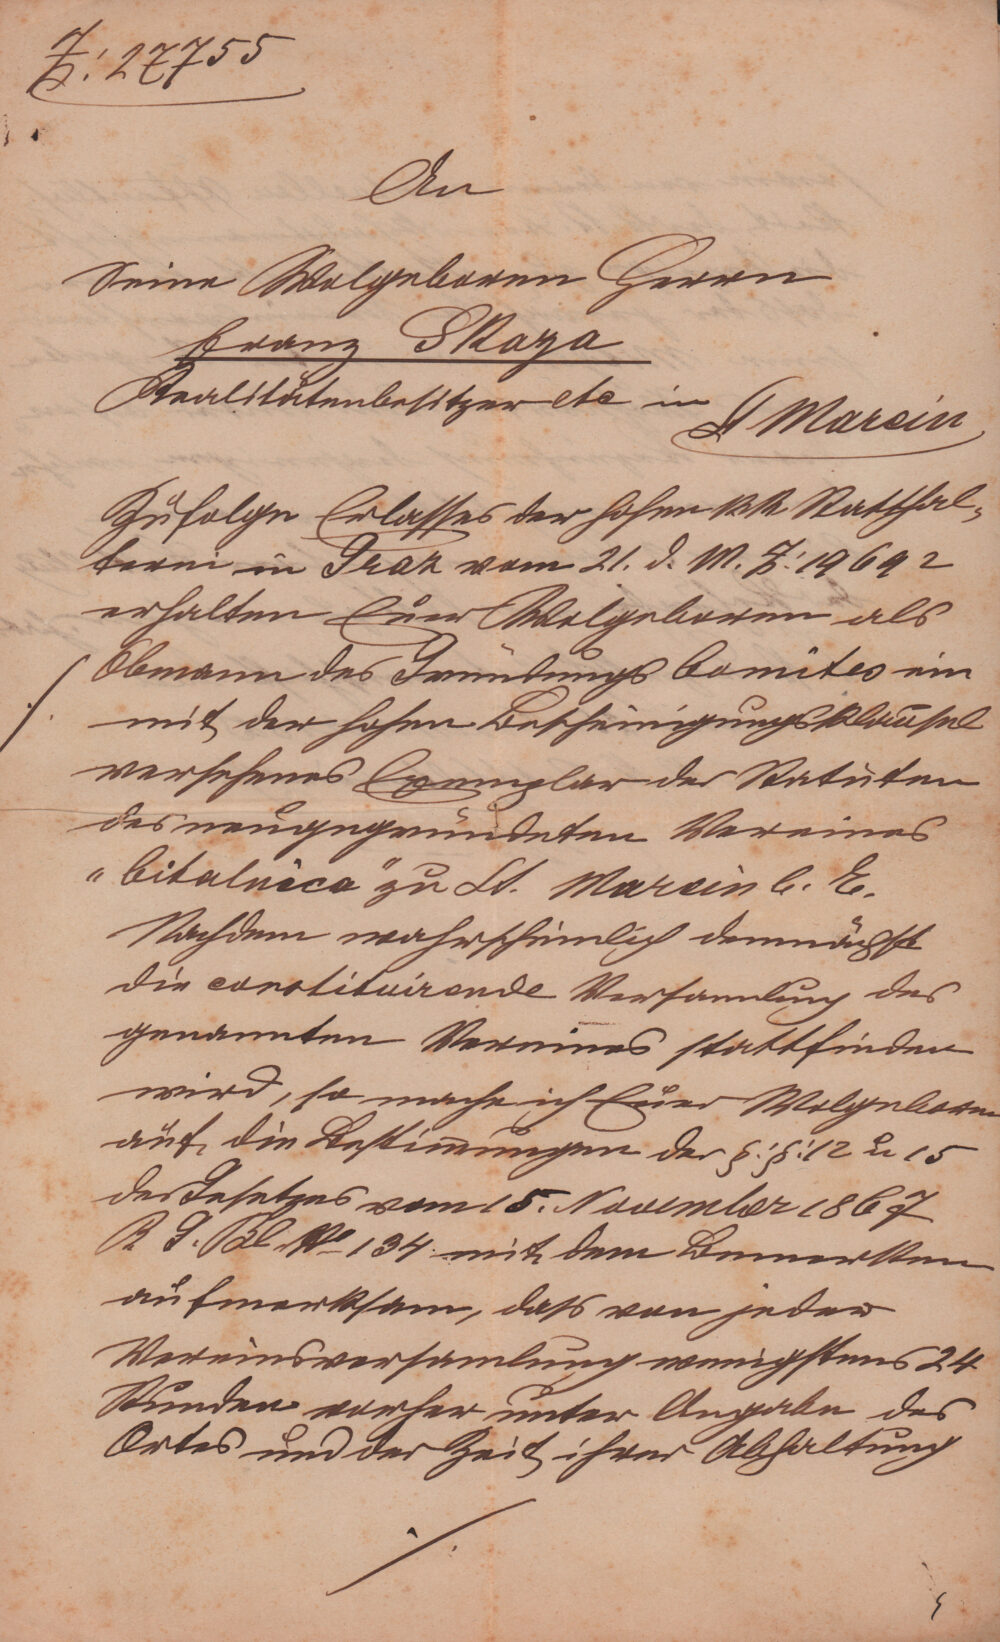 Z: 27755
An
Seine Wolgeboren Herrn
Franz Skaza
Realitätenbesitzer etc in St Marein
Zufolge Erlasses der hohen kk Statthal-
terei in Graz vom 21. d. M. Z: 19692
erhalten Euer Wolgeboren als
Obmann des Gründungs Comites ein
mit der hohen Bescheinigungsklausel
versehenes Exemplar der Statuten
des neugegründeten Vereines
"Citalnica" zu St. Marein b. E.
Nachdem wahrscheinlich demnächst
die constituirende Versammlung des
genannten Vereines stattfinden
wird, so mache ich Euer Wolgeboren
auf die Bestimmungen der §:§: 12 u 15
des Gesetzes vom 15. November 1867
R. G. Bl. No 134 mit dem Bemerken
aufmerksam, dass von jeder
Vereinsversamlung wenigstens 24
Stunden vorher unter Angabe des
Ortes und der Zeit ihrer Abhaltung
./.